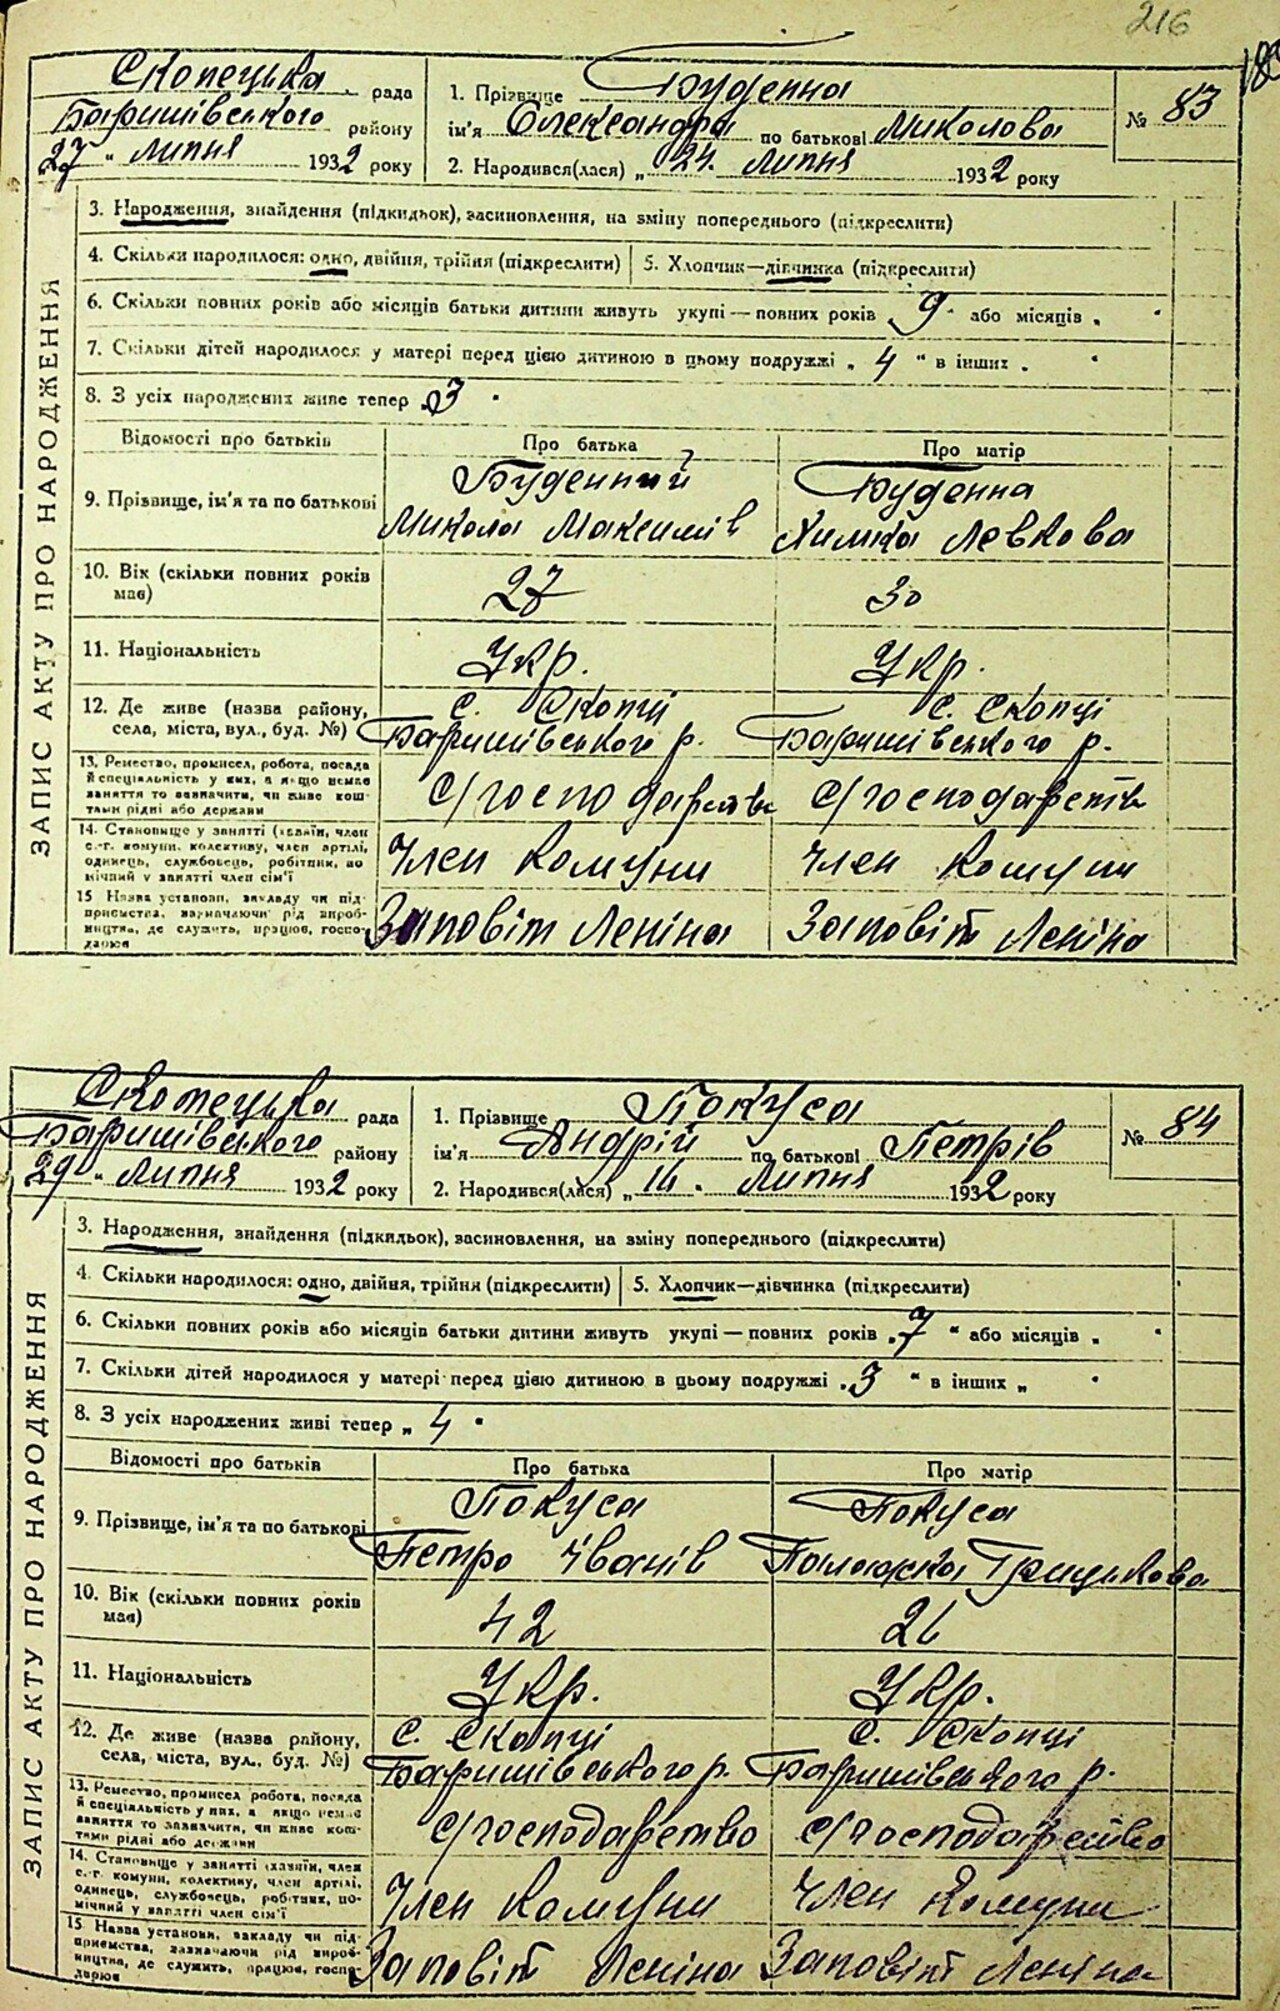 216
Скопецька рада
Баришівського району
27 " липня 1932 року
1. Прізвище Буденна
ім'я Олександра по батькові Миколова
2. Народився(лася) „ 24. липня 1932 року
№ 83
ЗАПИС АКТУ ПРО НАРОДЖЕННЯ
3. Народження, знайдення (підкидьок), засиновлення, на зміну попереднього (підкреслити)
4. Скільки народилося: одно, двійня, трійня (підкреслити) 5. Хлопчик—дівчинка (підкреслити)
6. Скільки повних років або місяців батьки дитини живуть укупі — повних років „ 9 " або місяців „ "
7. Скільки дітей народилося у матері перед цією дитиною в цьому подружжі „ 4 " в інших „ "
8. З усіх народжених живе тепер „ 3 "
Відомості про батьків Про батька Про матір
9. Прізвище, ім'я та по батькові
Буденний Буденна
Микола Максимів Химка Левкова
10. Вік (скільки повних років має) 27 30
11. Національність Укр. Укр.
12. Де живе (назва району, с. Скопці с. Скопці
села, міста, вул., буд. №) Баришівського р. Баришівського р.
13. Ремество, промисел, робота, посада
й спеціяльність у них, а якщо немає
заняття то зазначити, чи живе кош-
тами рідні або держави
с/господарства с/господарств
14. Становище у занятті (хазяїн, член
с.-г. комуни, колективу, член артілі,
одинець, службовець, робітник, по-
мічний у занятті член сім'ї
Член комуни Член комуни
15 Назва установи, закладу чи під-
приємства, зазначаючи рід вироб-
ництва, де служить, працює, госпо-
дарює
Заповіт Леніна Заповіт Леніна
Скопецька рада
Баришівського району
29 " липня 1932 року
1. Прізвище Покуса
ім'я Андрій по батькові Петрів
2. Народився(лася) „ 14. липня 1932 року
№ 84
ЗАПИС АКТУ ПРО НАРОДЖЕННЯ
3. Народження, знайдення (підкидьок), засиновлення, на зміну попереднього (підкреслити)
4. Скільки народилося: одно, двійня, трійня (підкреслити) 5. Хлопчик—дівчинка (підкреслити)
6. Скільки повних років або місяців батьки дитини живуть укупі — повних років „ 7 " або місяців „ "
7. Скільки дітей народилося у матері перед цією дитиною в цьому подружжі „ 3 " в інших „ "
8. З усіх народжених живі тепер „ 4 "
Відомості про батьків Про батька Про матір
9. Прізвище, ім'я та по батькові
Покуса Покуса
Петро Іванів Палажка Грицькова
10. Вік (скільки повних років має) 42 26
11. Національність Укр. Укр.
12. Де живе (назва району, с. Скопці с. Скопці
села, міста, вул., буд. №) Баришівського р. Баришівського р.
13. Ремество, промисел робота, посада
й спеціяльність у них, а якщо немає
заняття то зазначити, чи живе кош-
тами рідні або держави
с/господарство с/господарство
14. Становище у занятті (хазяїн, член
с.-г. комуни, колективу, член артілі,
одинець, службовець, робітник, по-
мічний у занятті член сім'ї
Член комуни Член комуни
15. Назва установи, закладу чи під-
приємства, зазначаючи рід вироб-
ництва, де служить, працює, госпо-
дарює
Заповіт Леніна Заповіт Леніна